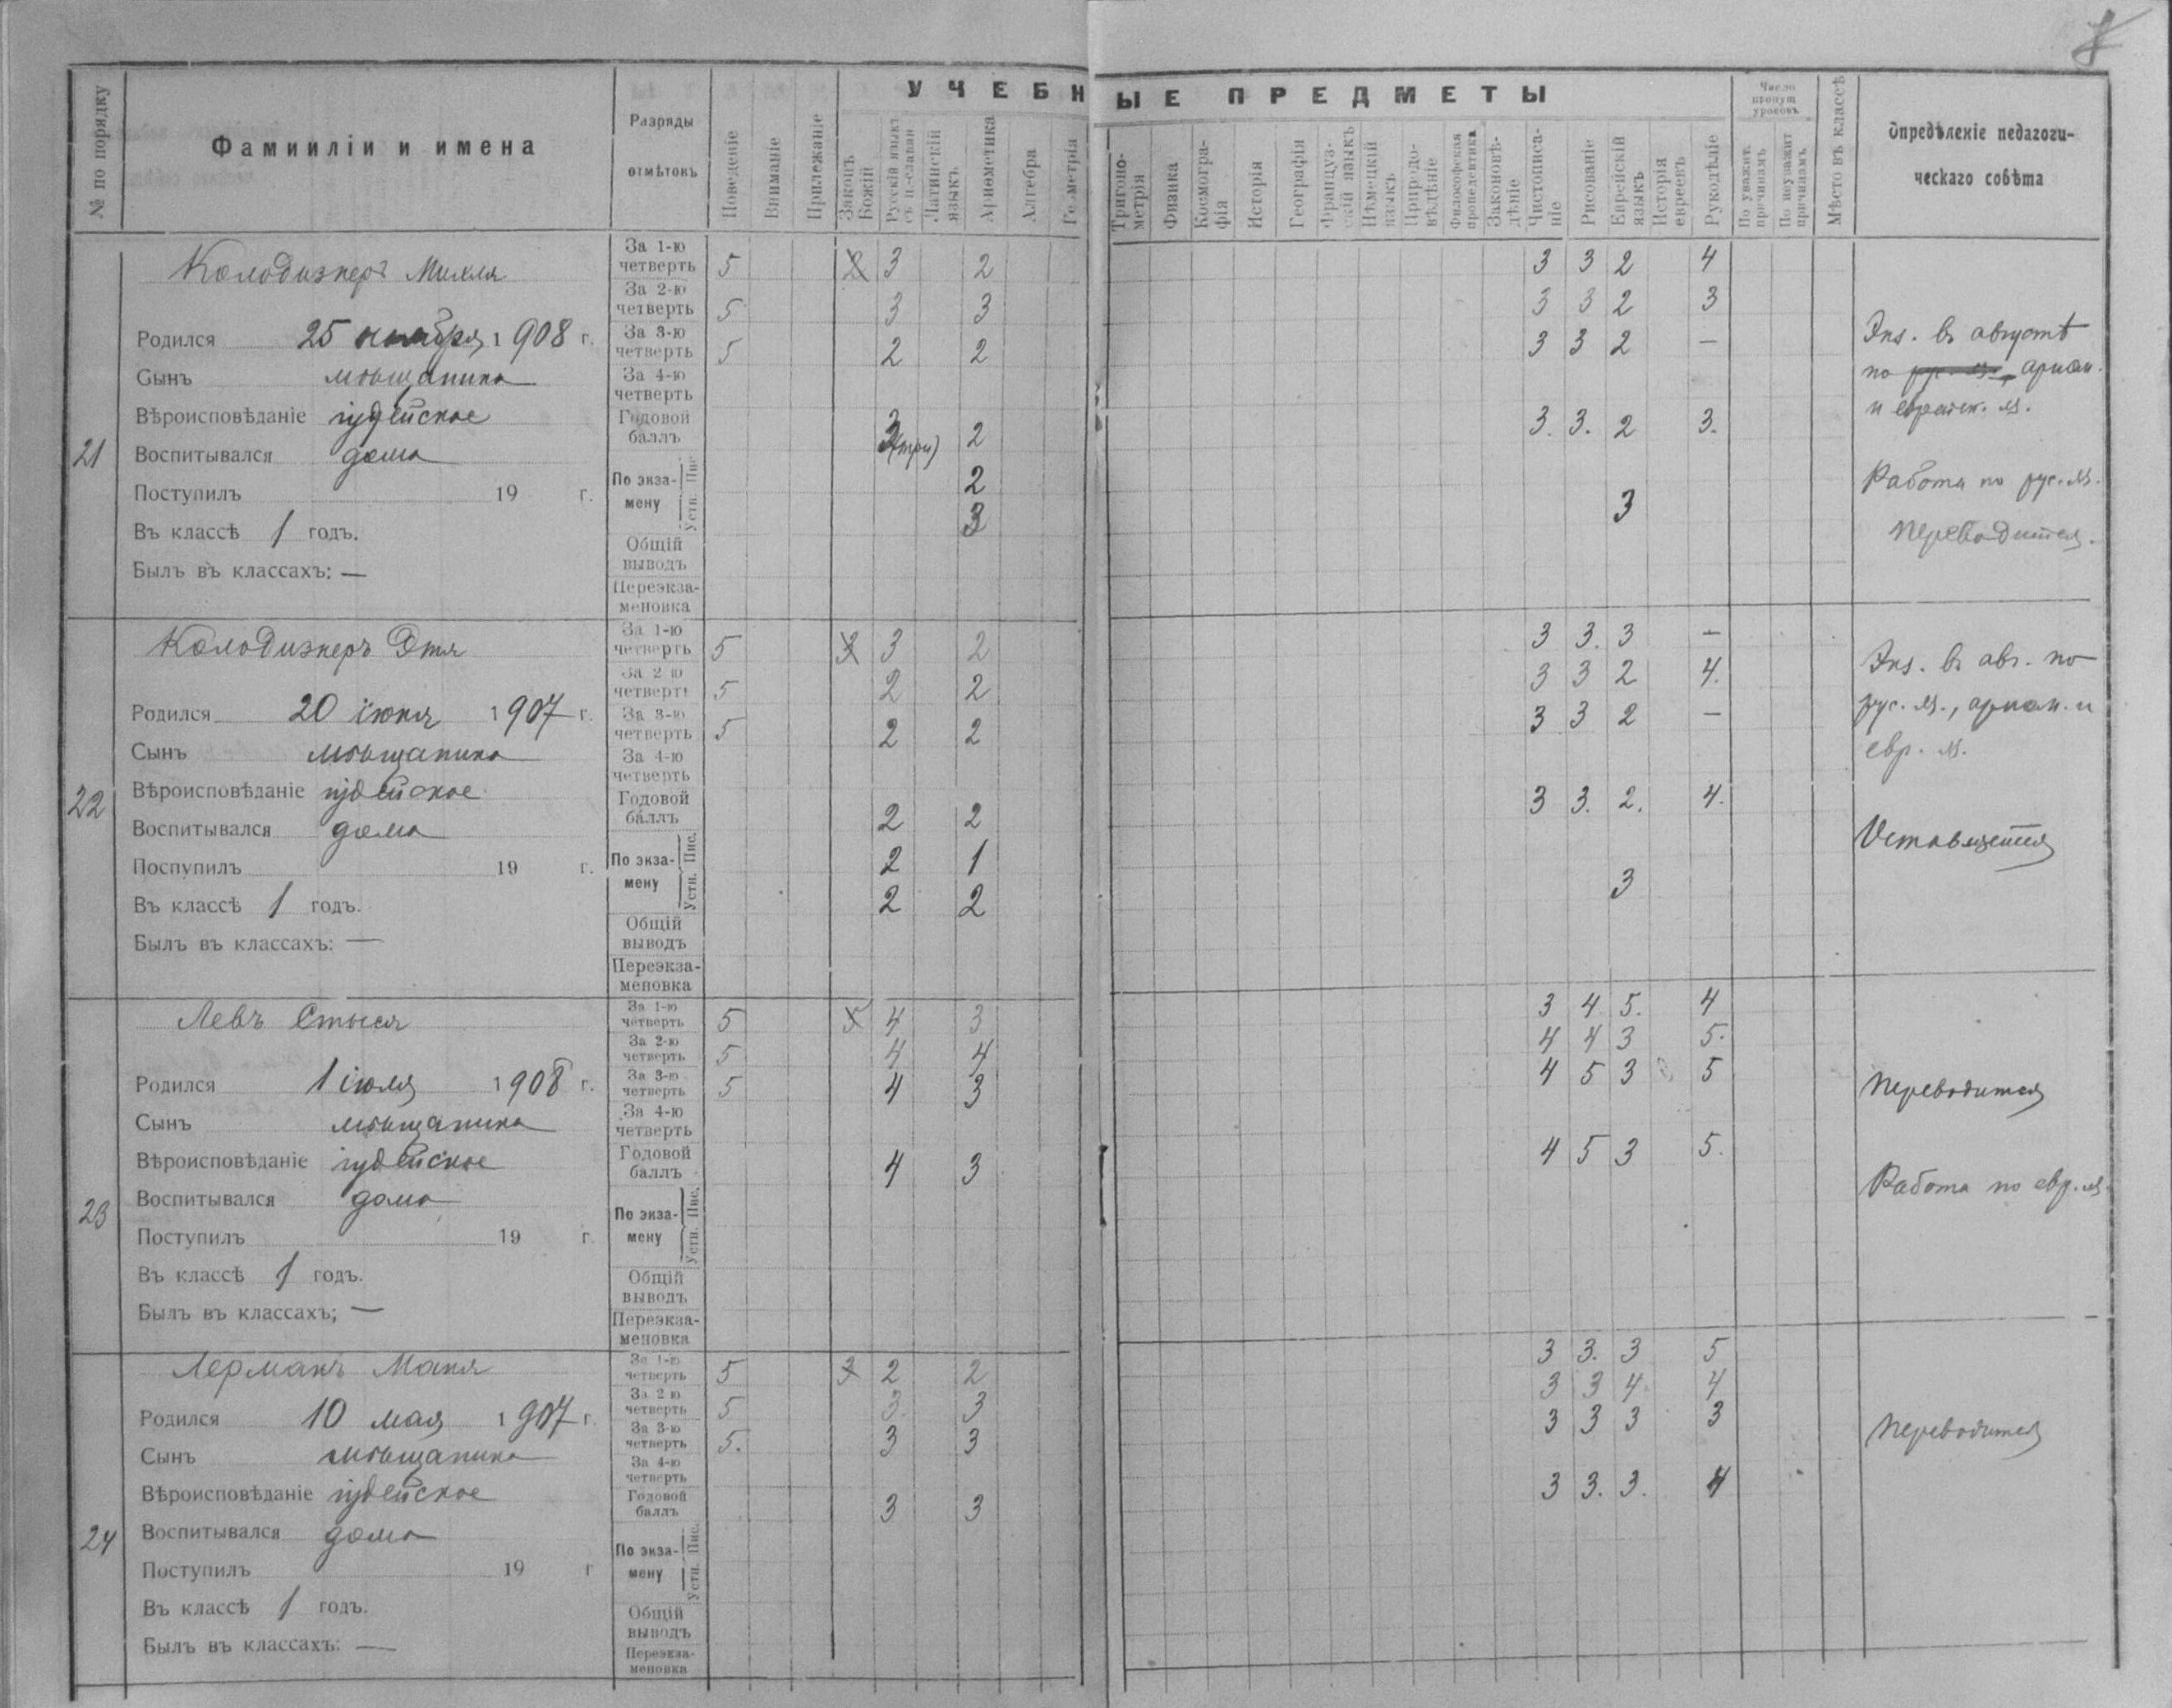 УЧЕБНЫЕ ПРЕДМЕТЫ
№ по порядку
Фамииліи и имена
Разряды отмѣтокъ
Поведеніе
Вниманіе
Прилежаніе
Законъ Божій
Русскій языкъ съ ц-славян
Латинскій языкъ
Ариѳметика
Алгебра
Геометрія
Тригоно-метрія
Физика
Космогра-фія
Исторія
Географія
Француз-скій языкъ
Нѣмецкій языкъ
Природо-вѣдѣніе
Философская пропедевтика
Законовѣ-дѣніе
Чистописа-ніе
Рисованіе
Еврейскій языкъ
Исторія евреевъ
Рукодѣліе
Число пропущ уроковъ
По уважит. причинамъ
По неуважит причинамъ
Мѣсто въ классѣ
Опредѣленіе педагоги-
ческаго совѣта
21
Колодизнеръ Михля
Родился 25 ноября 1908 г.
Сынъ мѣщанина
Вѣроисповѣданіе іудейское
Воспитывался дома
Поступилъ 19 г.
Въ классѣ 1 годъ.
Былъ въ классахъ: —
За 1-ю четверть 5 2 3 2 3 3 2 4
За 2-ю четверть 5 3 3 3 3 2 3
За 3-ю четверть 5 2 2 3 3 2 —
За 4-ю четверть
Годовой баллъ 3 (три) 2 3. 3. 2 3.
По экза-мену Пис. 2
Устн. 3 3
Общій выводъ
Переэкза-меновка
Экз. въ августѣ
по рус. яз., ариѳм.
и еврейск. яз.
Работа по рус. яз.
Переводится.
22
Колодизнеръ Этя
Родился 20 іюня 1907 г.
Сынъ мѣщанина
Вѣроисповѣданіе іудейское
Воспитывался дома
Поспупилъ 19 г.
Въ классѣ 1 годъ.
Былъ въ классахъ: —
За 1-ю четверть 5 3 3 2 3 3. 3 —
За 2 ю четверть 5 2 2 3 3 2 4.
За 3-ю четверть 5 2 2 3 3 2 —
За 4-ю четверть
Годовой баллъ 2 2 3 3. 2. 4.
По экза-мену Пис. 2 1
Устн. 2 2 3
Общій выводъ
Переэкза-меновка
Экз. въ авг. по
рус. яз., ариѳм. и
евр. яз.
Оставляется
23
Левъ Стыся
Родился 1 іюля 1908 г.
Сынъ мѣщанина
Вѣроисповѣданіе іудейское
Воспитывался дома
Поступилъ 19 г.
Въ классѣ 1 годъ.
Былъ въ классахъ; —
За 1-ю четверть 5 4 3 3 4 5. 4
За 2-ю четверть 5 4 4 4 4 3 5.
За 3-ю четверть 5 4 3 4 5 3 5
За 4-ю четверть
Годовой баллъ 4 3 4 5 3 5.
По экза-мену Пис. Устн.
Общій выводъ
Переэкза-меновка
Переводится
Работа по евр. яз.
24
Лерманъ Маня
Родился 10 мая 1907 г.
Сынъ мѣщанина
Вѣроисповѣданіе іудейское
Воспитывался дома
Поступилъ 19 г
Въ классѣ 1 годъ.
Былъ въ классахъ: —
За 1-ю четверть 5 3 2 2 3 3. 3 5
За 2 ю четверть 5 3 3 3 3 4 4
За 3-ю четверть 5. 3 3 3 3 3 3
За 4-ю четверть
Годовой баллъ 3 3 3 3. 3. 4
По экза-мену Пис. Устн.
Общій выводъ
Переэкза-меновка
Переводится